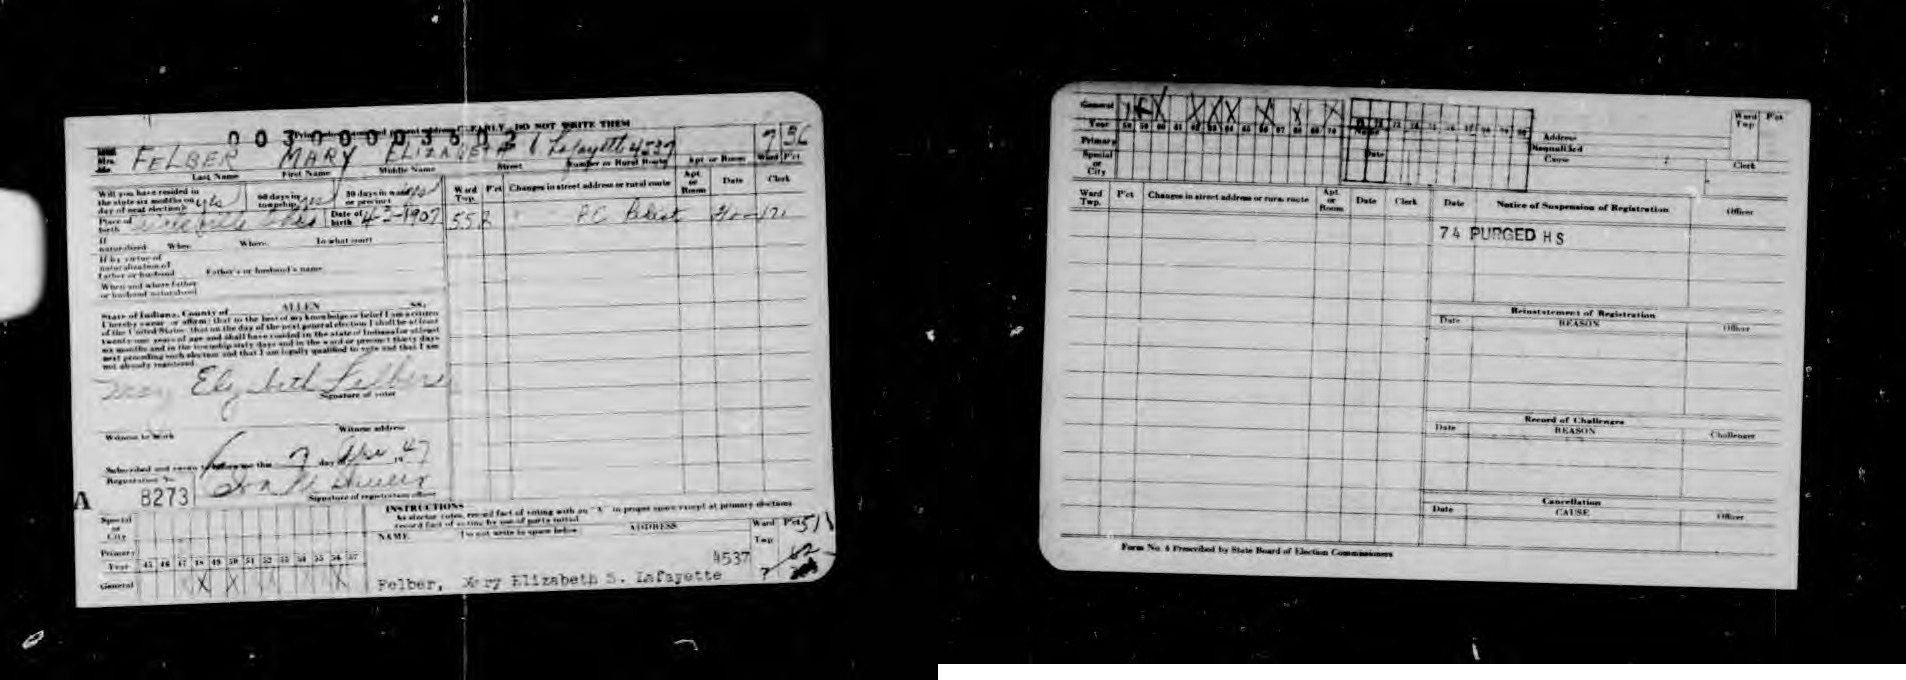 EARLY, DO NOT WRITE THEM
FELBER MARY ELIZABETH S Lafayette 4537 7 56
Last Name First Name Middle Name Street Number or Rural Route Apt or Room Ward P'ct
Will you have resided in the state six months on day of next election? yes 60 days in township yes 30 days in ward or precinct yes
Ward Twp. P'ct Changes in street address or rural route Apt. or Room Date Clerk
Place of birth Date of birth 4-3-1907
If naturalized When Where In what court
If by virtue of naturalization of Father or husband Father's or husband's name
When and where father or husband naturalized
State of Indiana, County of ALLEN SS.
I hereby swear or affirm that to the best of my knowledge or belief I am a citizen
of the United States, that on the day of the next general election I shall be at least
twenty-one years of age and shall have resided in the state of Indiana for at least
six months and in the township sixty days and in the ward or precinct thirty days
next preceding such election and that I am legally qualified to vote and that I am
not already registered.
Mary Elizabeth Felber
Signature of voter
Witness to Mark Witness address
Subscribed and sworn to before me this 7 day 19 47
Registration No.
A 8273
Signature of registration officer
INSTRUCTIONS
As elector votes, record fact of voting with an "X" in proper space except at primary elections
record fact of voting by use of party initial.
Special or City
NAME Do not write in space below ADDRESS Ward Twp P'ct
Primary
Year 45 46 47 48 49 50 51 52 53 54 55 56 57
General X X X
4537
Felber, Mary Elizabeth S. Lafayette
General
Year 58 59 60 61 62 63 64 65 66 67 68 69 70
Primary
Special or City
Name
Date
Address
Disqualified
Cause
Ward Twp P'ct
Clerk
Ward Twp. P'ct Changes in street address or rural route Apt. or Room Date Clerk
Date Notice of Suspension of Registration Officer
74 PURGED HS
Reinstatement of Registration
Date REASON Officer
Record of Challenges
Date REASON Challenger
Cancellation
Date CAUSE Officer
Form No. 6 Prescribed by State Board of Election Commissioners